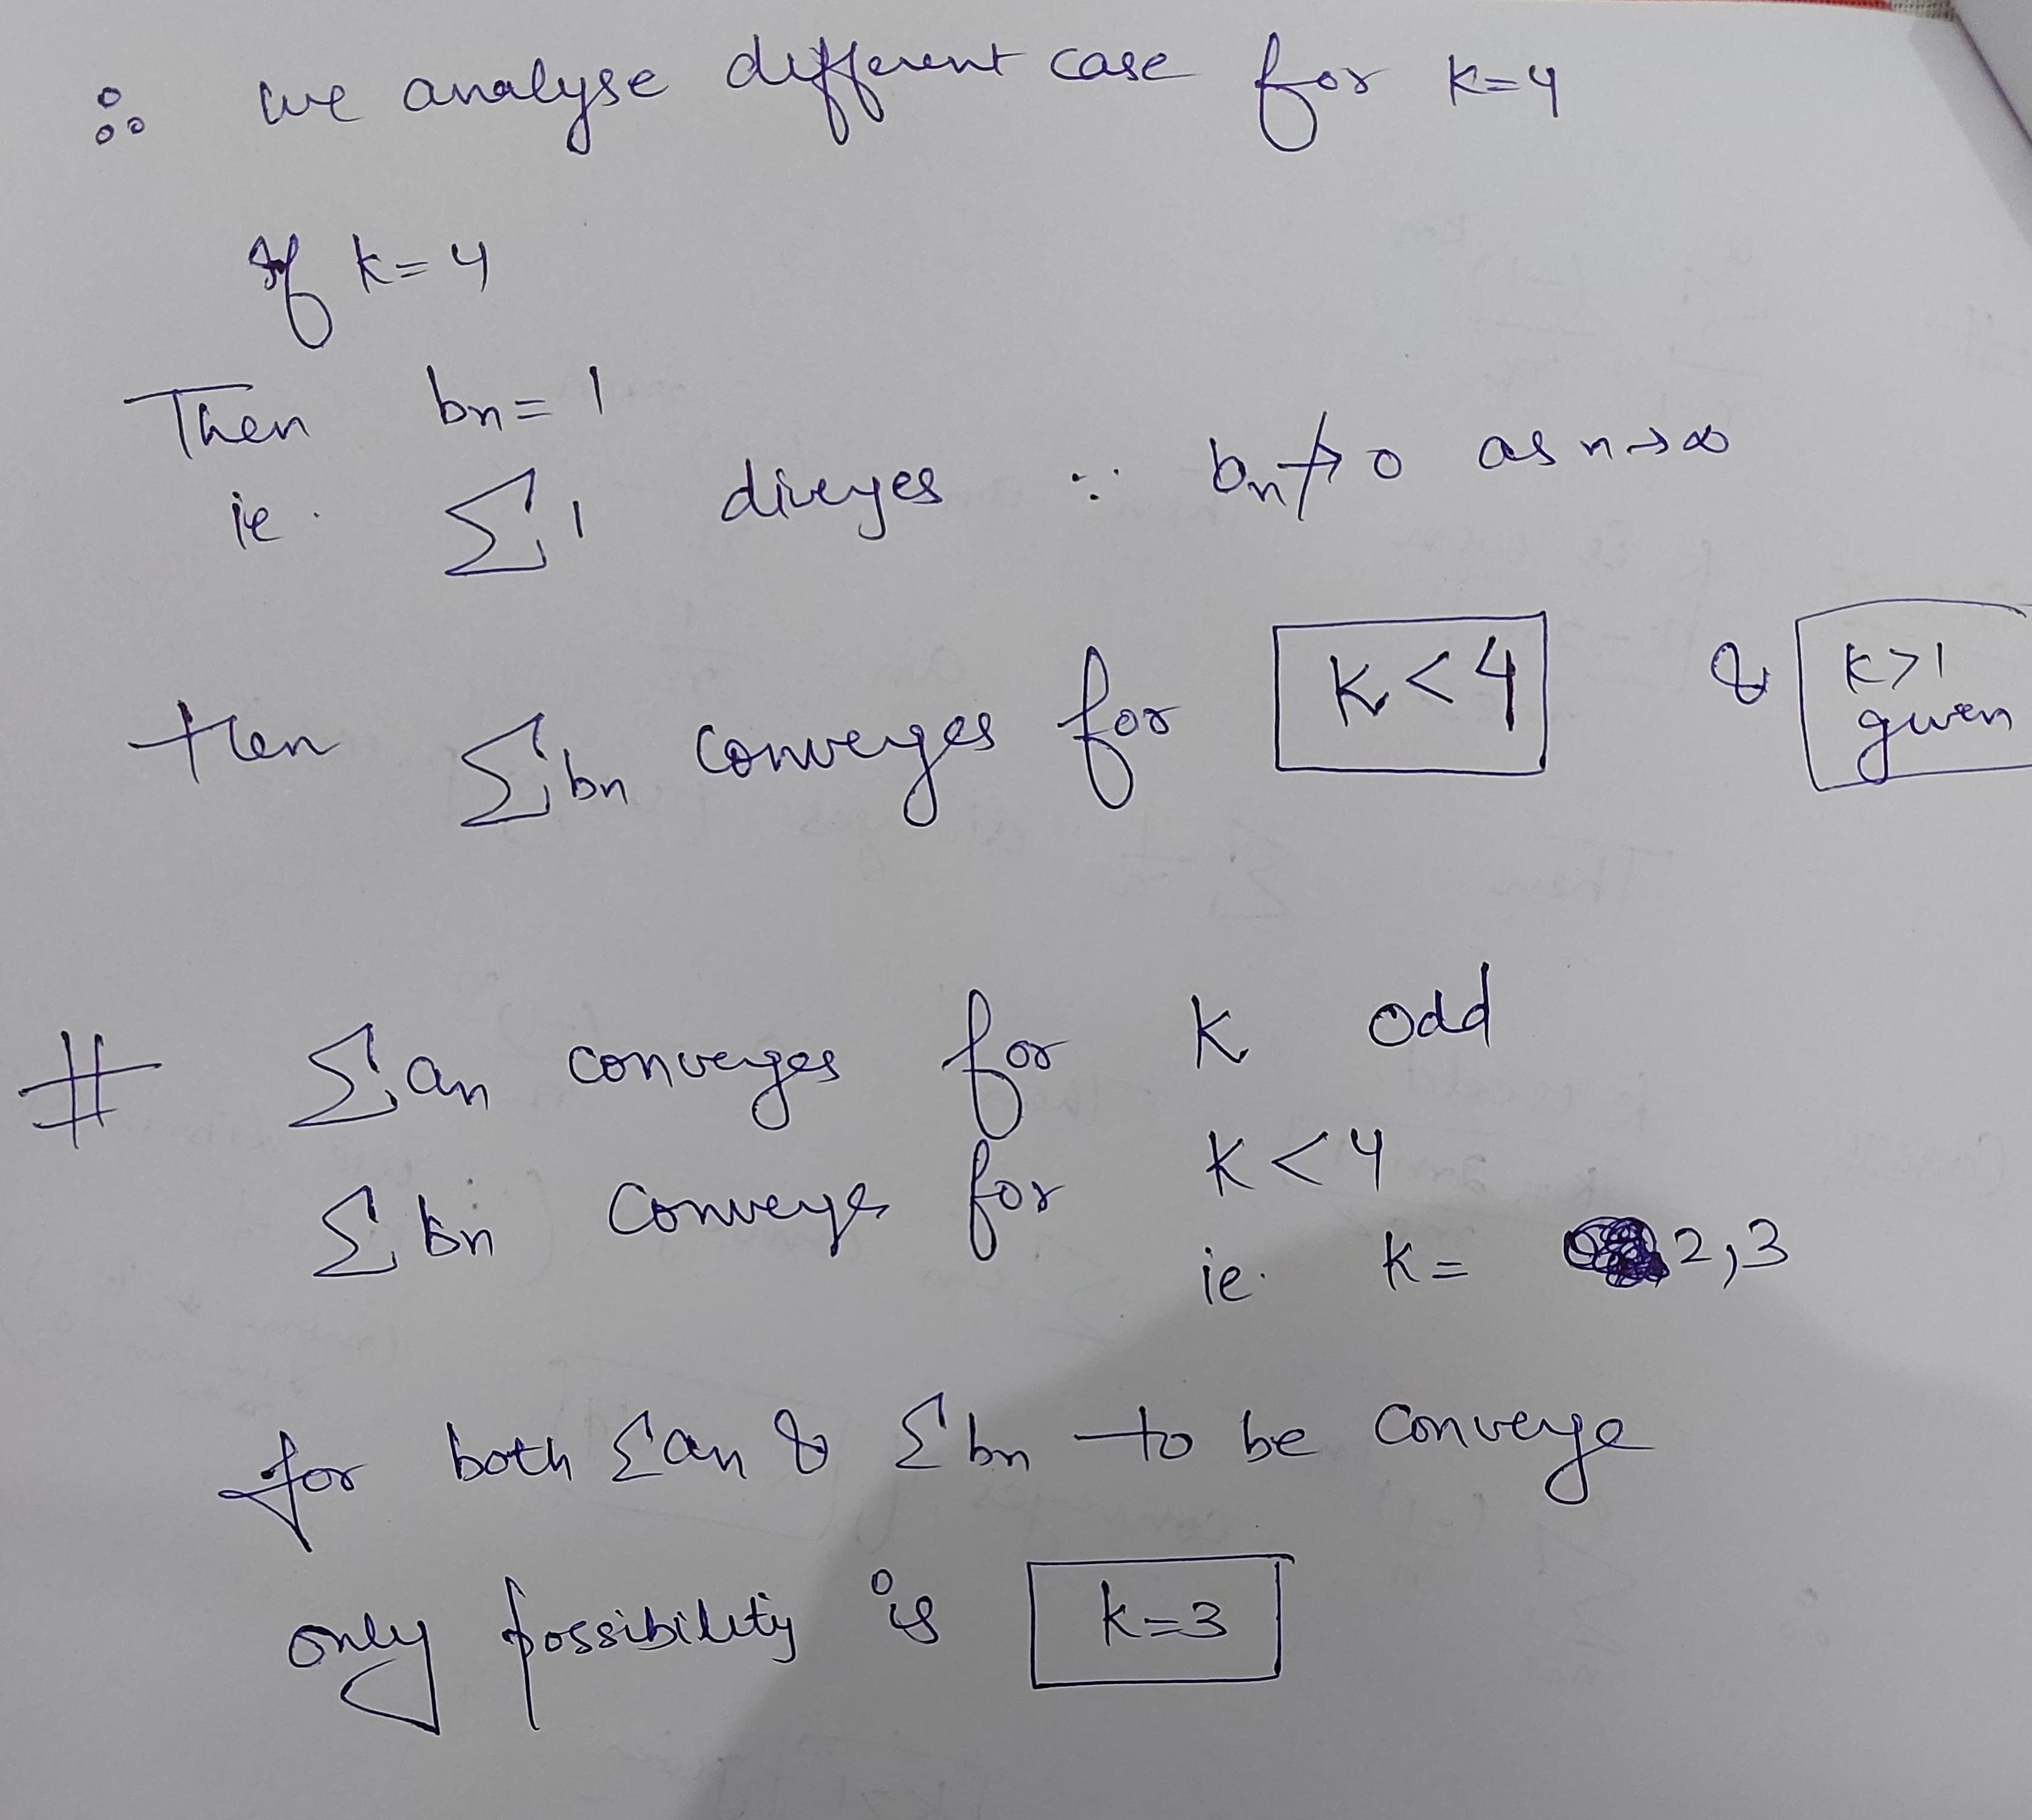 ∴ we analyse different case for k=4
If k=4
Then bn=1
ie. Σ1 diverges ∵ bn↛0 as n→∞
then Σbn converges for k<4 & k>1 given
# Σan converges for k odd
Σbn converge for k<4
ie. k= 2,3
for both Σan & Σbn to be converge
only possibility is k=3